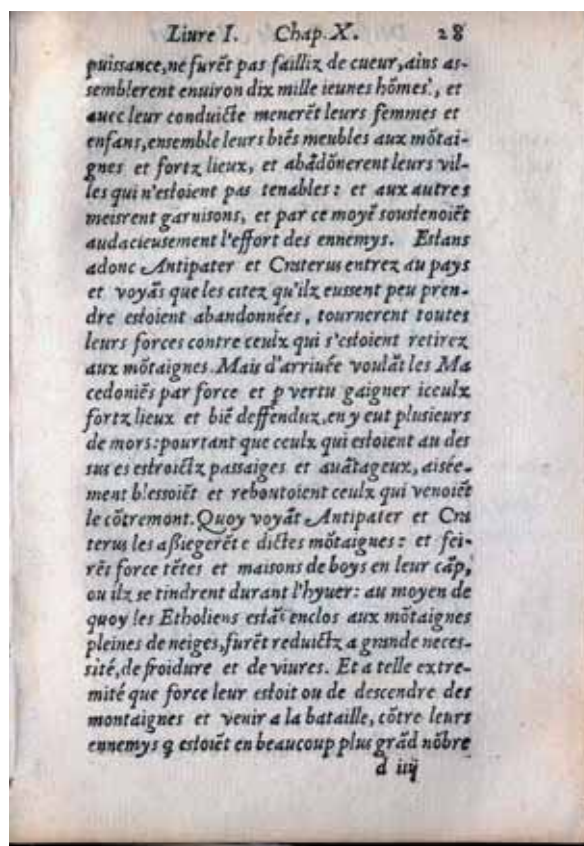 Liure I. Chap. X. 28
puissance, ne furẽt pas failliz de cueur, ains as-
semblerent enuiron dix mille ieunes hõmes, et
auec leur conduicte menerẽt leurs femmes et
enfans, ensemble leurs biẽs meubles aux mõtai-
gnes et fortz lieux, et abãdõnerent leurs vil-
les qui n'estoient pas tenables : et aux autres
meisrent garnisons, et par ce moyẽ soustenoiẽt
audacieusement l'effort des ennemys. Estans
adonc Antipater et Craterus entrez au pays
et voyãs que les citez qu'ilz eussent peu pren-
dre estoient abandonnées, tournerent toutes
leurs forces contre ceulx qui s'estoient retirez
aux mõtaignes. Mais d'arriuée voulãt les Ma
cedoniẽs par force et p vertu gaigner iceulx
fortz lieux et biẽ deffenduz, en y eut plusieurs
de mors : pourtant que ceulx qui estoient au des
sus es estroictz passaiges et auãtageux, aisée-
ment blessoiẽt et reboutoient ceulx qui venoiẽt
le cõtremont. Quoy voyãt Antipater et Cra
terus les aßiegerẽt e dictes mõtaignes : et fei-
rẽt force tẽtes et maisons de boys en leur cãp,
ou ilz se tindrent durant l'hyuer : au moyen de
quoy les Etholiens estãs enclos aux mõtaignes
pleines de neiges, furẽt reduictz a grande neces-
sité, de froidure et de viures. Et a telle extre-
mité que force leur estoit ou de descendre des
montaignes et venir a la bataille, cõtre leurs
ennemys q estoiẽt en beaucoup plus grãd nõbre
d iiij